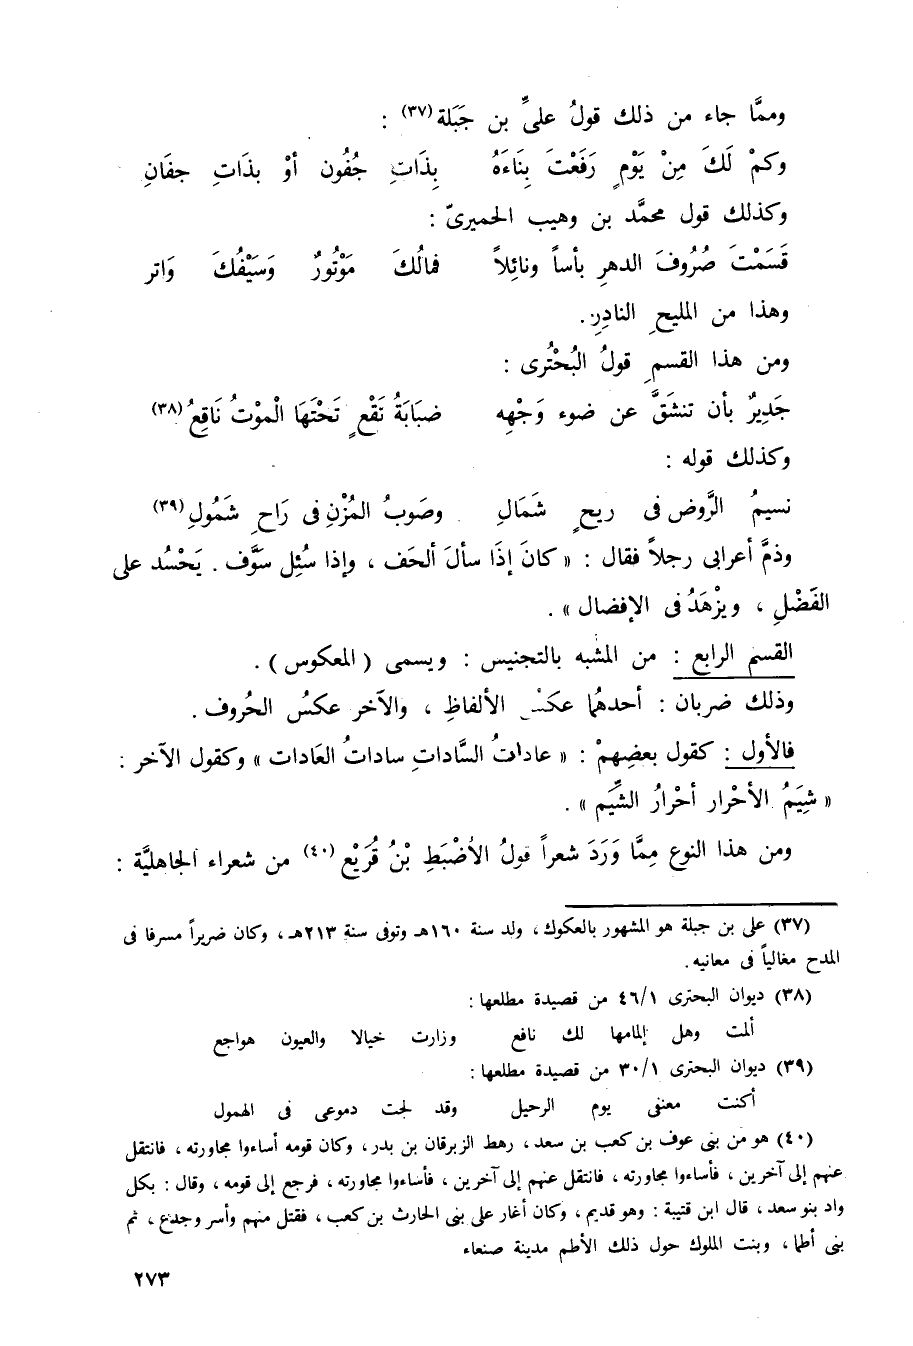 وممَّا جاء من ذلك قولُ علىِّ بن جَبَلة (٣٧) :
وكمْ لَكَ مِنْ يَوْمٍ رَفَعْتَ بِنَاءَهُ    بِذَاتِ جُفُون أوْ بذَاتِ جفَانِ
وكذلك قول محمَّد بن وهيب الحميرىّ :
قَسَمْتَ صُرُوفَ الدهرِ بأساً ونائِلاً    فمالُكَ مَوْتُورٌ وَسَيْفُكَ وَاتر
وهذا من المليحِ النادِرِ .
ومن هذا القسمِ قولُ البُحْتُرى :
جَدِيرٌ بأن تنشَقَّ عن ضوء وَجْهِه    ضبَابَةُ نَقْعٍ تَحْتَهَا الْموْتُ نَاقِعُ (٣٨)
وكذلك قوله :
نسيمُ الرَّوض فى ريحٍ شَمَالِ    وصَوبُ المُزْنِ فى رَاحِ شَمُولِ (٣٩)
وذمَّ أعرابى رجلاً فقال : « كانَ إذَا سألَ ألحَف ، وإذا سُئِل سَوَّف . يَحْسُد على
الفَضْلِ ، ويزْهَدُ فى الإفضال » .
القسم الرابع : من المشبه بالتجنيس : ويسمى ( المعكوس ) .
وذلك ضربان : أحدهُما عكسْ الألفاظِ ، والآخر عكسُ الحُروف .
فالأول : كقول بعضِهمْ : « عاداتُ السَّاداتِ ساداتُ العَادات » وكقول الآخر :
« شِيَمُ الأحْرار أحْرارُ الشِّيَم » .
ومن هذا النوع مِمَّا وَرَدَ شعراً قولُ الأضْبَطِ بْنُ قُرَيْع (٤٠) من شعراء الجاهليَّة :
(٣٧) على بن جبلة هو المشهور بالعكوك ، ولد سنة ١٦٠هـ وتوفى سنة ٢١٣هـ ، وكان ضريراً مسرفا فى
المدح مغالياً فى معانيه .
(٣٨) ديوان البحترى ٤٦/١ من قصيدة مطلعها :
ألمت وهل إلمامها لك نافع    وزارت خيالا والعيون هواجع
(٣٩) ديوان البحترى ٣٠/١ من قصيدة مطلعها :
أكنت معنفى يوم الرحيل    وقد لجت دموعى فى الهمول
(٤٠) هو من بنى عوف بن كعب بن سعد ، رهط الزبرقان بن بدر ، وكان قومه أساءوا مجاورته ، فانتقل
عنهم إلى آخرين ، فأساءوا مجاورته ، فانتقل عنهم إلى آخرين ، فأساءوا مجاورته ، فرجع إلى قومه ، وقال : بكل
واد بنو سعد ، قال ابن قتيبة : وهو قديم ، وكان أغار على بنى الحارث بن كعب ، فقتل منهم وأسر وجدع ، ثم
بنى أطما ، وبنت الملوك حول ذلك الأطم مدينة صنعاء
٢٧٣